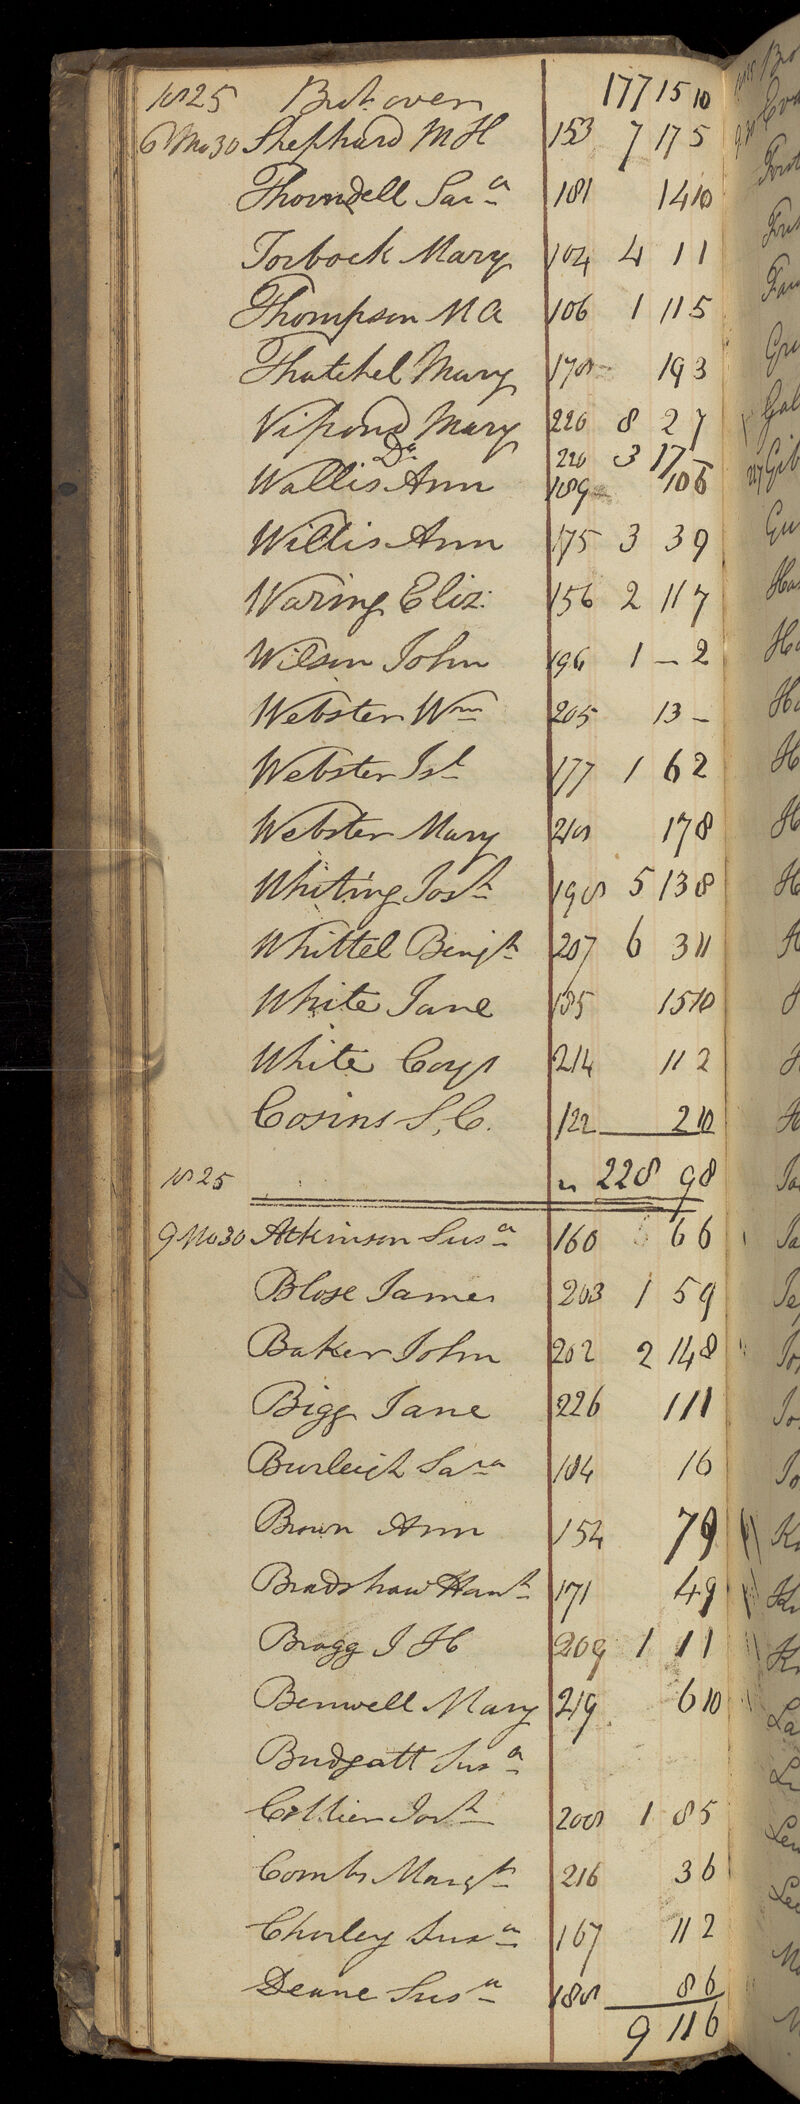 1825 Brot over 177 15 10
6 Mo 30 Shephard M H 153 7 17 5
Thorndell Sara 181 14 10
Torbock Mary 104 4 1 1
Thompson M A 106 1 11 5
Thatchel Mary 178 19 3
Vipond Mary 220 8 2 7
Do 220 3 17 –
Wallis Ann 189 10 6
Willis Ann 175 3 3 9
Waring Eliz: 156 2 11 7
Wilson John 196 1 – 2
Webster Wm 205 13 –
Webster Isl 177 1 6 2
Webster Mary 218 17 8
Whiting Josh 198 5 13 8
Whittel Benjn 207 6 3 11
White Jane 185 15 10
White 214 11 2
Cosins S. C. 122 2 10
1825 " 228 9 8
9 Mo 30 Atkinson Susa 160 6 6
Blose James 203 1 5 9
Baker John 202 2 14 8
Bigg Jane 226 1 11
Burleigh Sara 184 1 6
Brown Ann 154 7 9
Bradshaw Hanh 171 4 9
Bragg J H 209 1 1 1
Benwell Mary 219 6 10
Budgatt Susa
Collier Josh 208 1 8 5
Combs Margt 216 3 6
Chorley Susa 167 11 2
Deane Susa 188 8 6
9 11 6